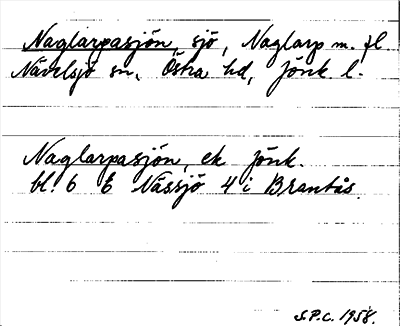 Naglarpasjön, sjö, Naglarp m. fl
Nävelsjö sn, Östra hd, Jönk l.
Naglarpasjön, ek Jönk.
bl. 6 E Nässjö 4 i Brantås.
S.P.C. 1958.